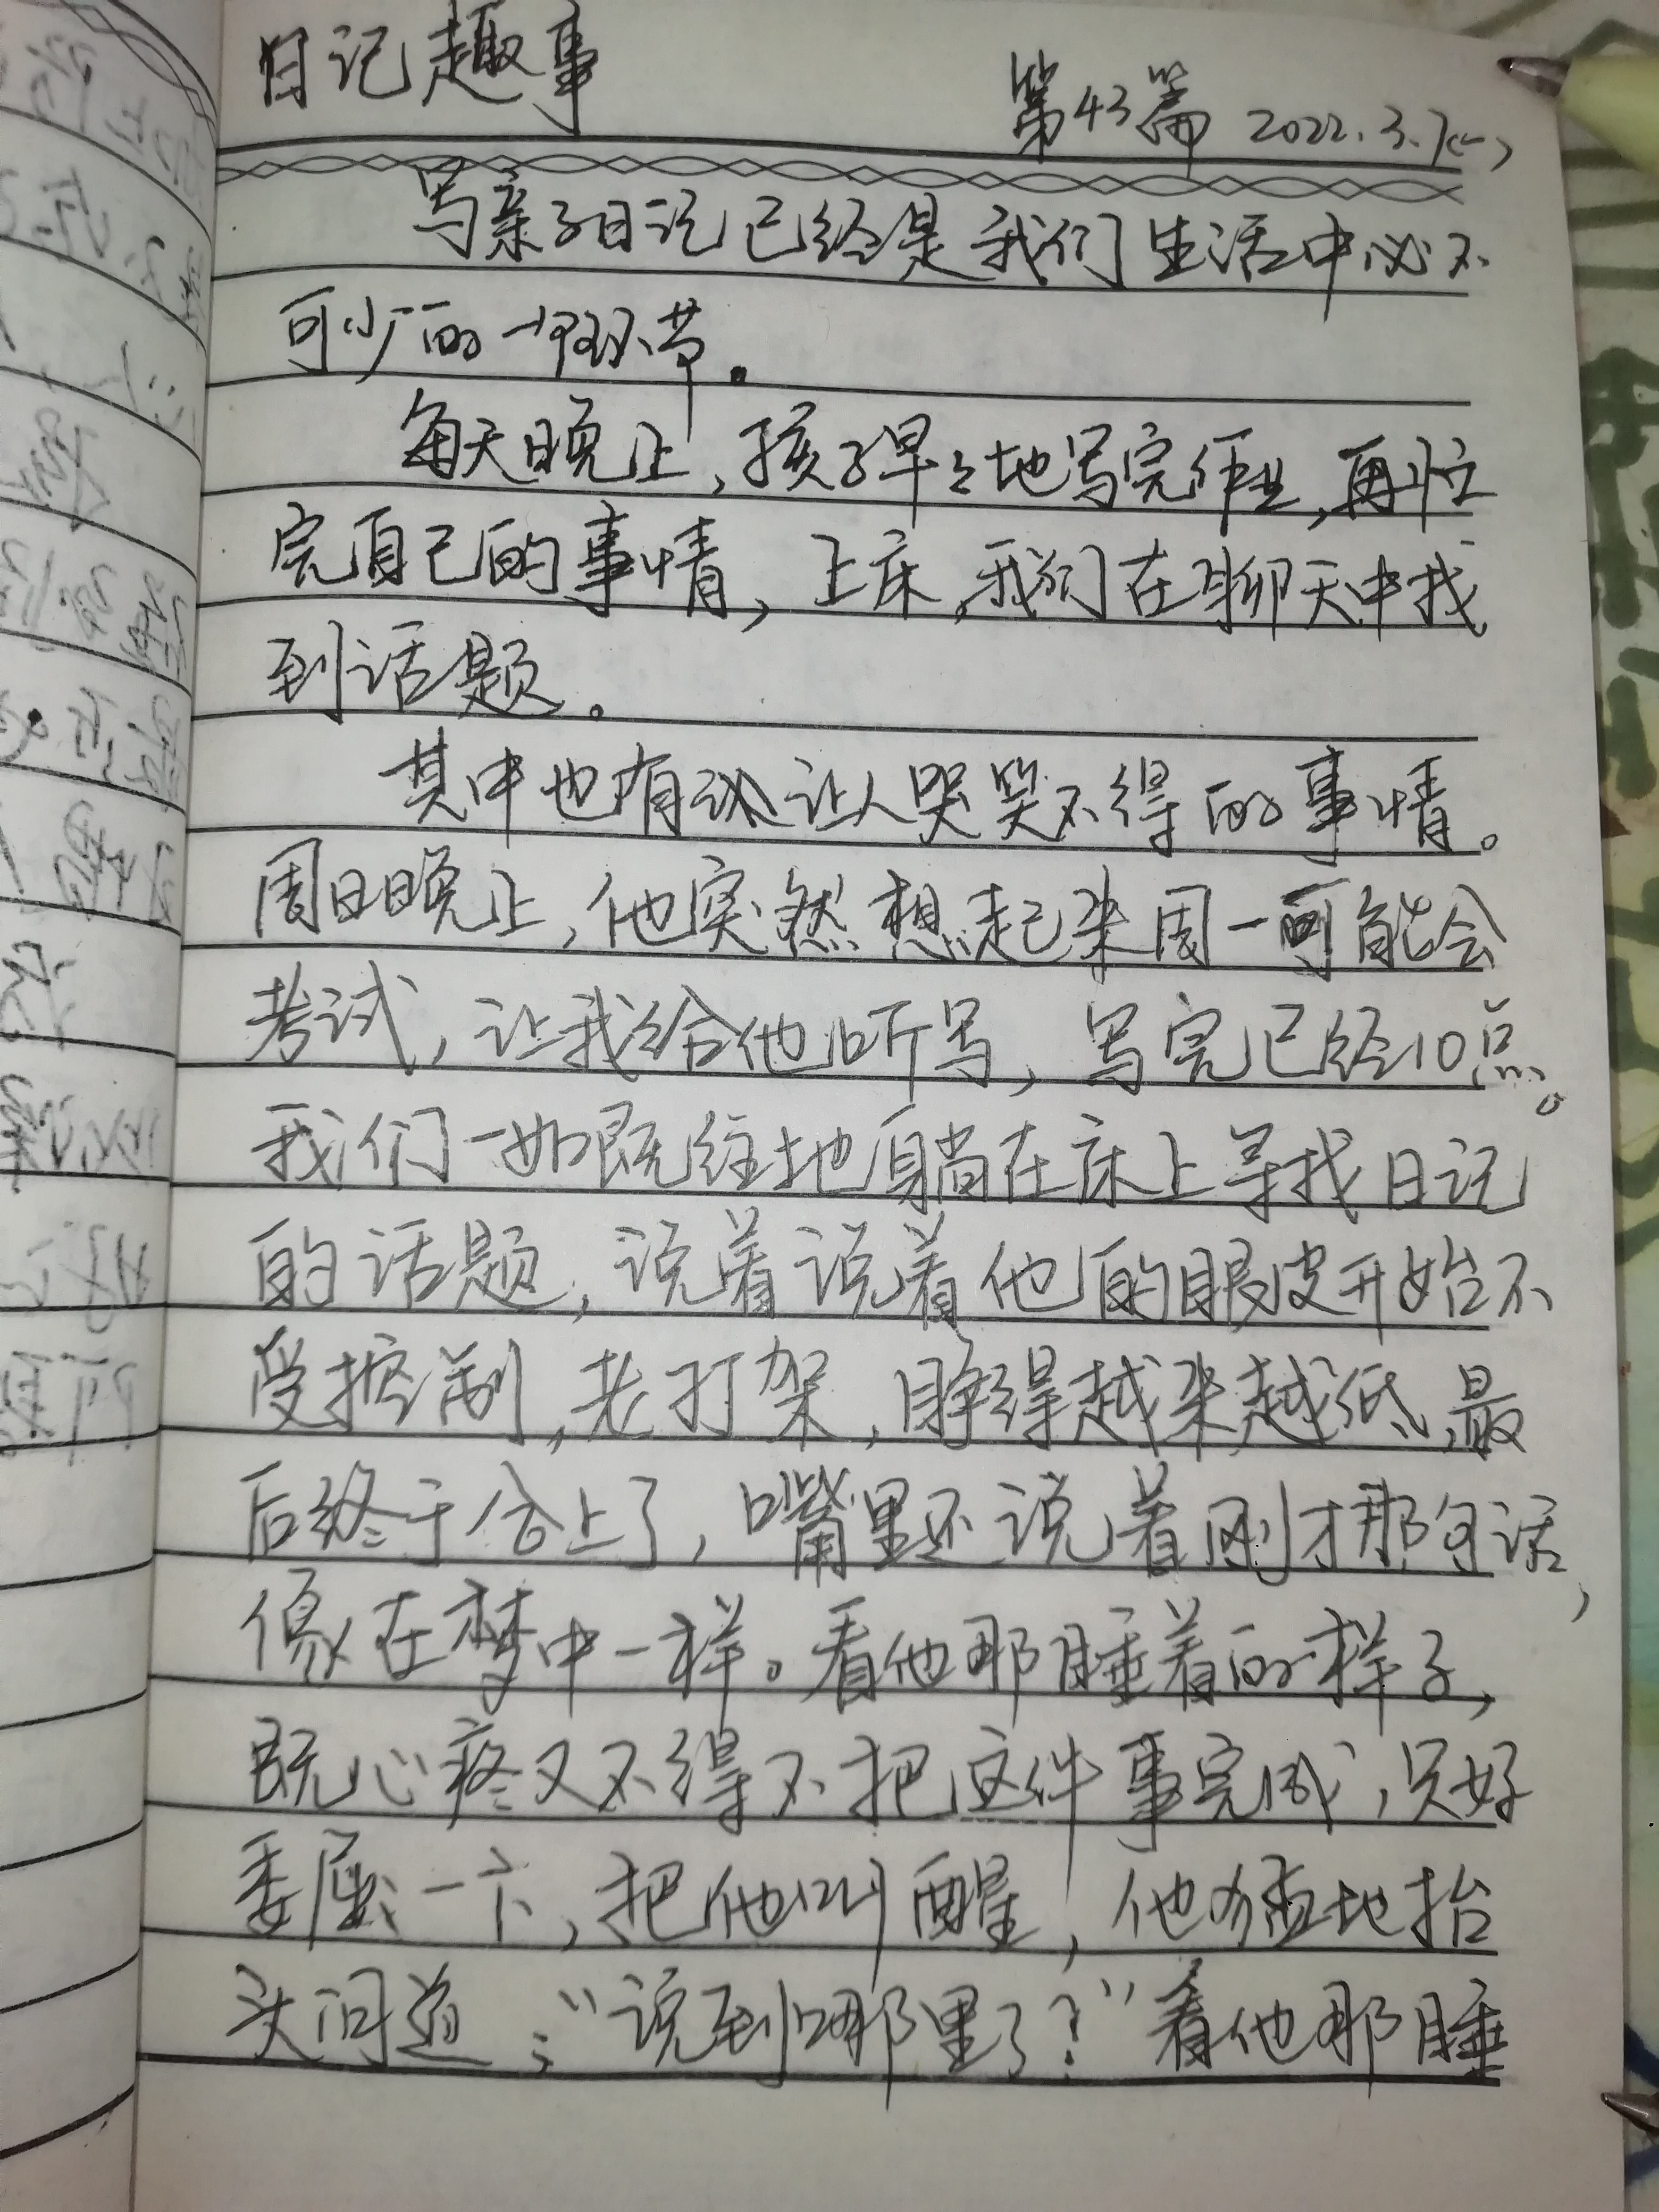 日记趣事
第43篇 2022.3.7(一)
写亲子日记已经是我们生活中必不
可少的一个环节。
每天晚上,孩子早早地写完作业,再忙
完自己的事情,上床,我们在聊天中找
到话题。
其中也有让人哭笑不得的事情。
周日晚上,他突然想起来周一可能会
考试,让我给他听写,写完已经10点。
我们一如既往地躺在床上寻找日记
的话题,说着说着他的眼皮开始不
受控制,老打架,睁得越来越低,最
后终于合上了,嘴里还说着刚才那句话,
像在梦中一样。看他那睡着的样子,
既心疼又不得不把这件事完成,只好
委屈一下,把他叫醒,他地抬
头问道:“说到哪里了?”看他那睡